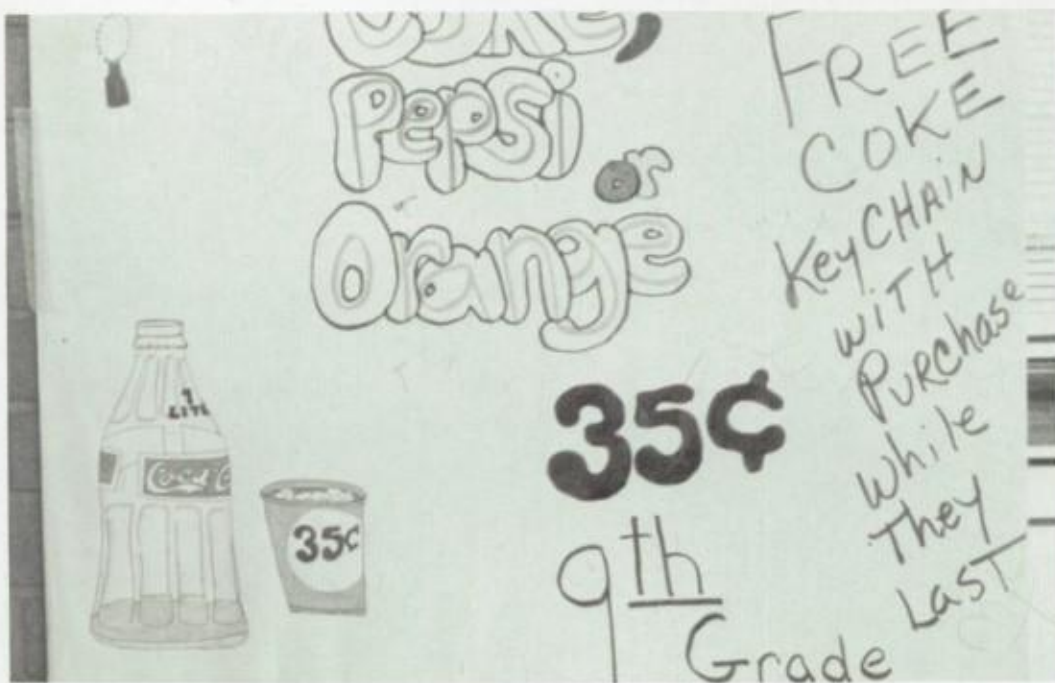 COKE,
Pepsi
or
Orange
35¢
9th
Grade
FREE
COKE
KeyCHAiN
WiTH
PURChase
while
They
LaST
1
LITE
Coca C
35¢